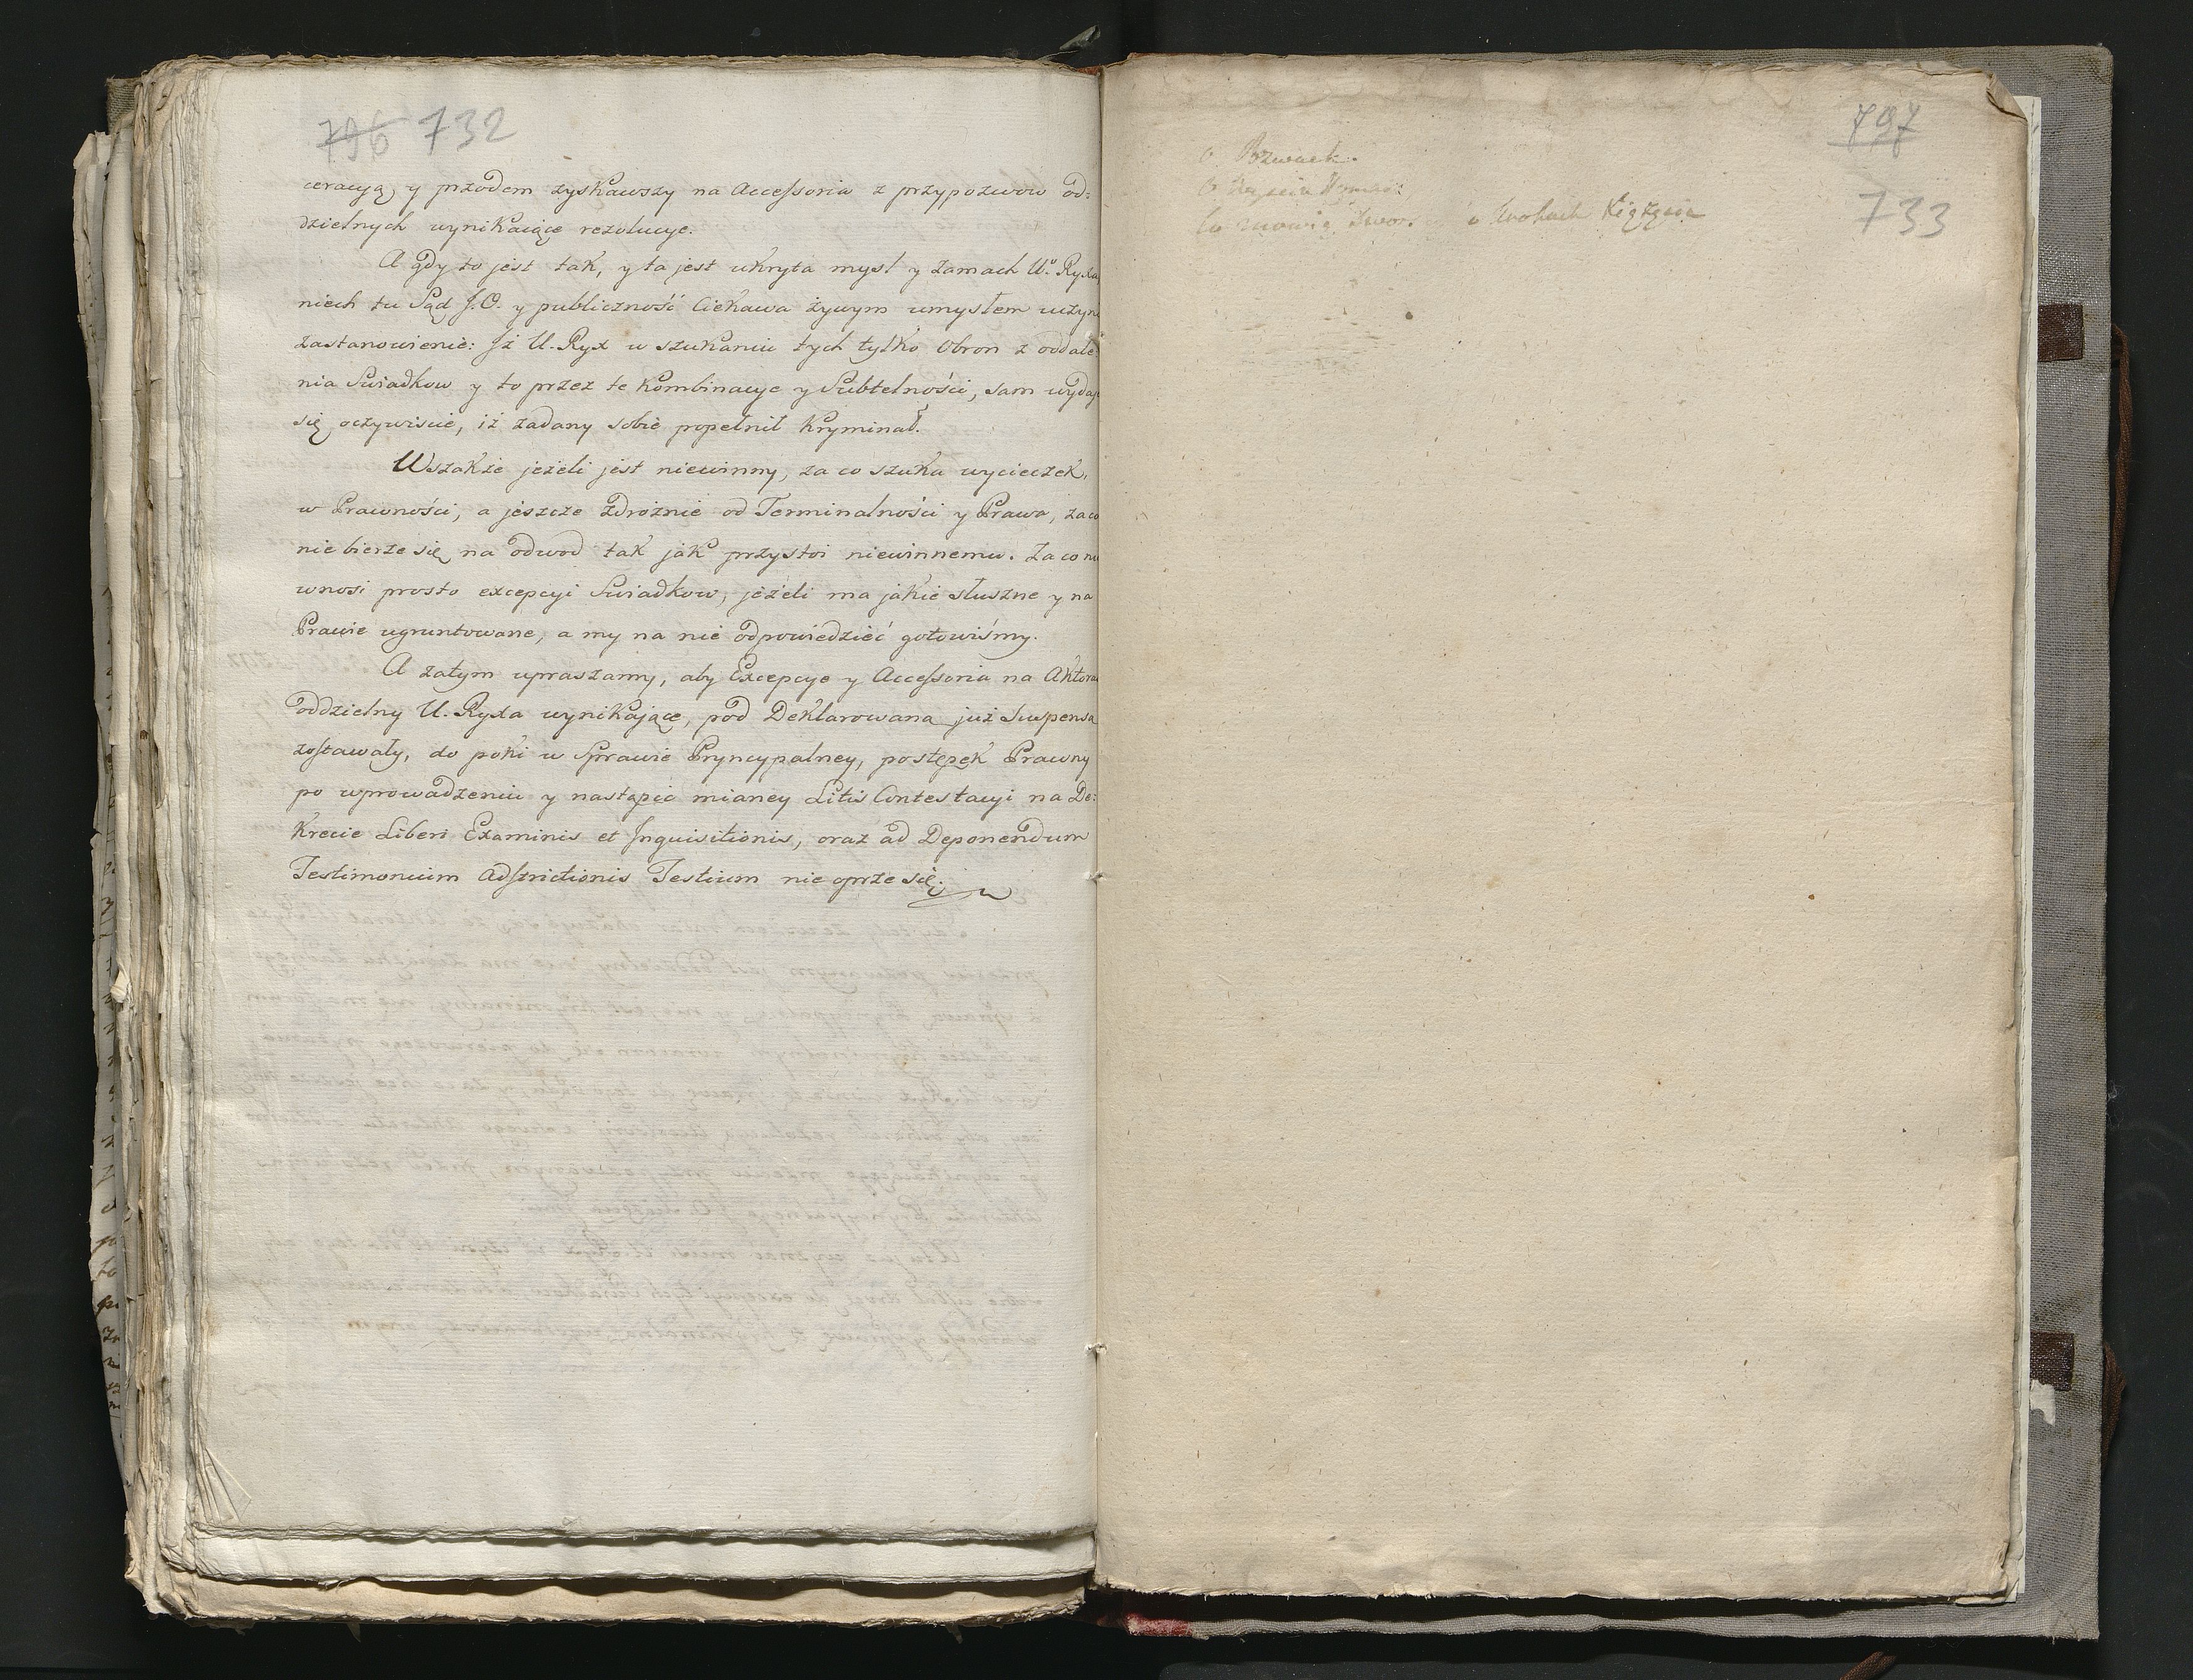 796 732
ceracyą, y przodem zyskawszy na Accessoria z przypozwow od=
dzielnych wynikaiące rezolucye.
A gdy to jest tak, y ta jest ukryta mysl y zamach Uo. Ryxa
niech tu Sąd J.O. y publiczność Ciekawa żywym umysłem uczyni
zastanowienie: Jż U. Ryx w szukaniu tych tylko Obron z oddale=
nia Swiadkow y to przez te Kombinacye y Subtelności, sam wydaje
się oczywiscie, iż zadany sobie popełnił Kryminał.
Wszakże jeżeli jest niewinny, za co szuka wycieczek,
w Prawności, a jeszcze zdrożnie od Terminalności y Prawa, za co
nie bierze się na odwod tak jak przystoi niewinnemu. Za co nie
wnosi prosto excepcyi Swiadkow, jeżeli ma jakie słuszne y na
Prawie ugruntowane, a my na nie odpowiedzieć gotowiśmy.
A zatym upraszamy, aby Excepcye y Accessoria na Aktorat
oddzielny U. Ryxa wynikające, pod Deklarowana już Suspensa
zostawały, do poki w Sprawie Pryncypalney, postępek Prawny
po wprowadzeniu y nastąpić mianey Litis Contestacyi na De=
krecie Liberi Examinis et Inquisitionis, oraz ad Deponendum
Testimonium Adstrictionis Testium nie oprze się.
797
733
o
o
Co mowią o Krokach Xiążęcia